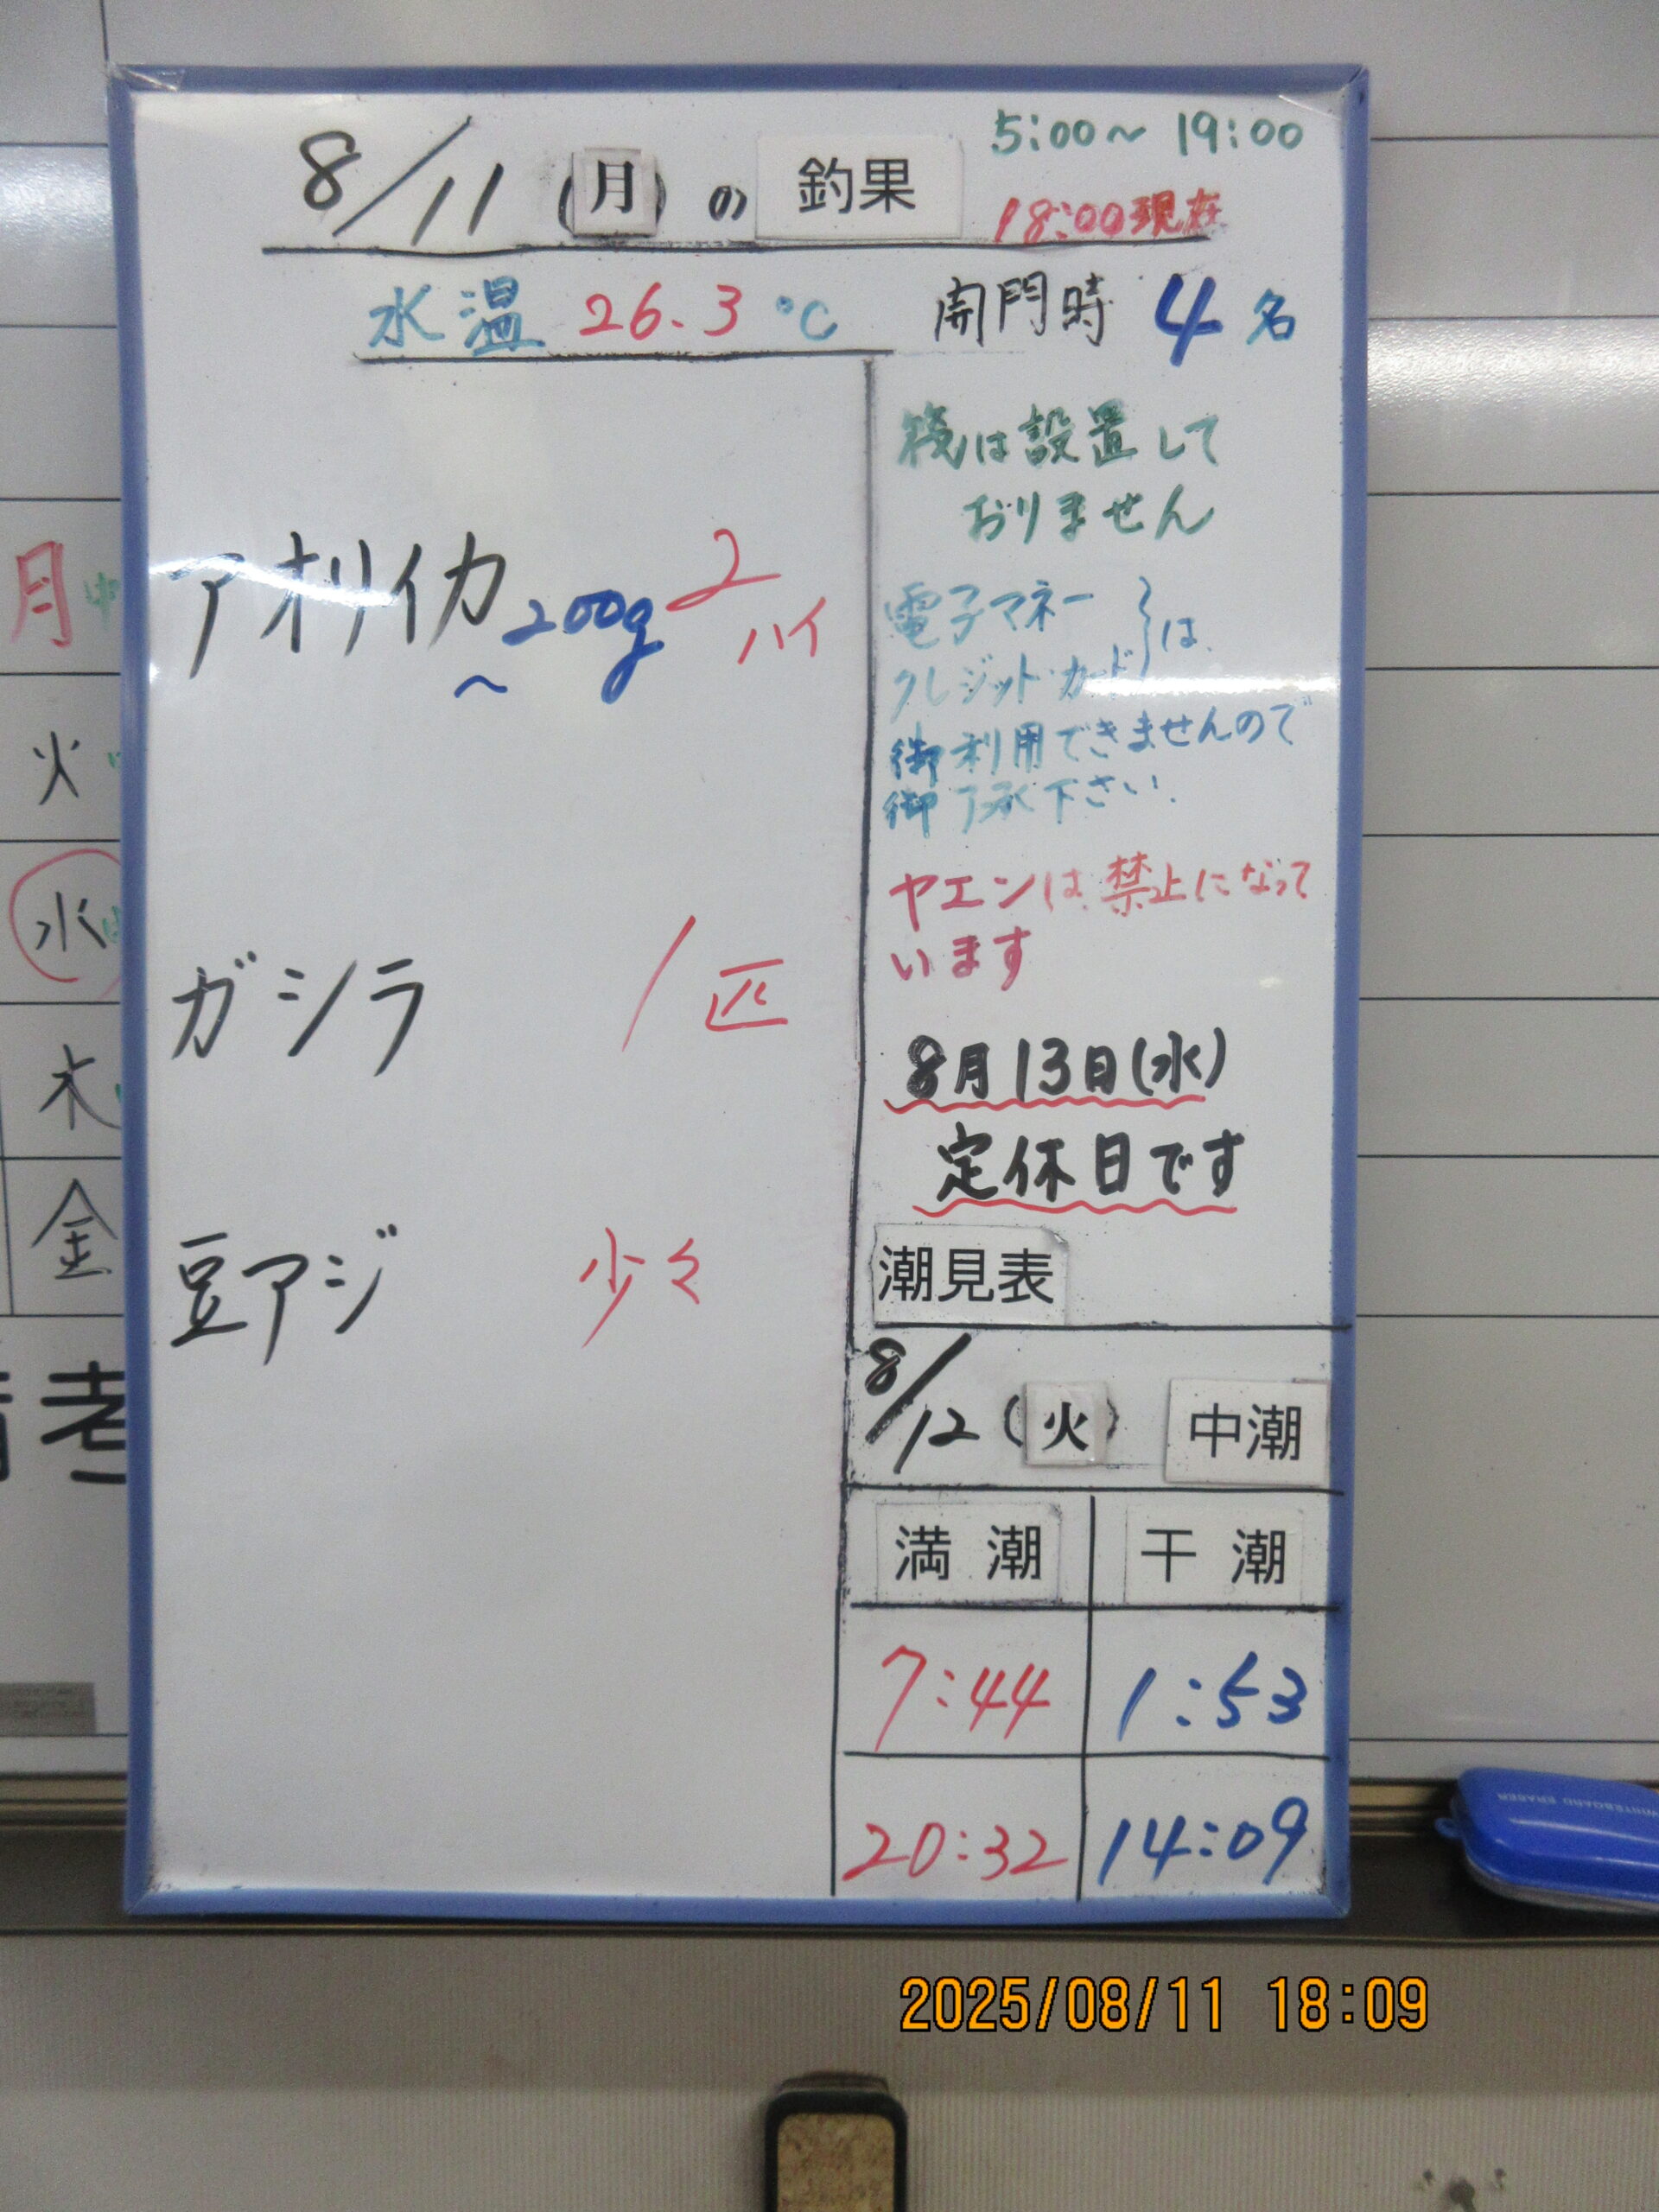 8/11(月)の釣果
5:00～19:00
18:00現在
水温 26.3℃
開門時 4名
アオリイカ ～200g 2ハイ
ガシラ 1匹
豆アジ 少々
筏は設置して
おりません
電子マネー
クレジットカード}は
御利用できませんので
御了承下さい.
ヤエンは禁止になって
います
8月13日(水)
定休日です
潮見表
8/12(火) 中潮
満潮 干潮
7:44 1:53
20:32 14:09
月
火
水
木
金
考
WHITEBOARD ERASER
2025/08/11 18:09